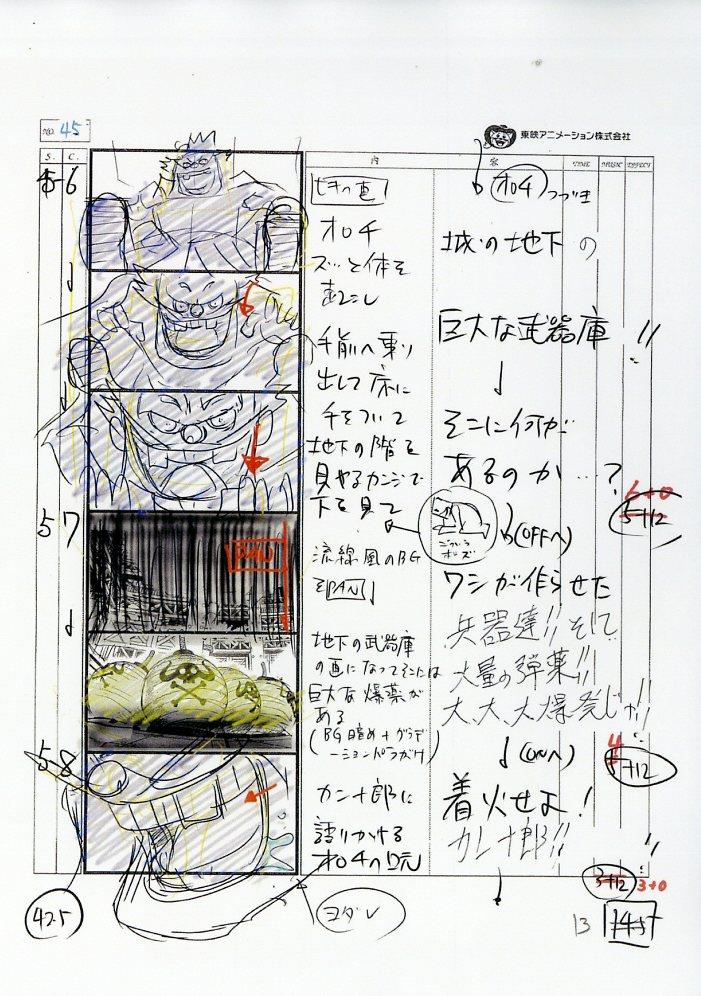 NO. 45
東映アニメーション株式会社
S. C. 内 容 TIME MUSIC EFFECT
56
オロチ
ズッと体を
起こし
手前へ乗り
出して床に
手をついて
地下の階を
見やるカンジで
下を見て
オロチ つづき
城の地下の
巨大な武器庫!!
そこに何が
あるのか…?
6+0
5+12
57
PAN
流線風のBG
をPAN
地下の武器庫
の画になってそこには
巨大な爆薬が
ある
(BG暗め+グラデ
ーションパラがけ)
(OFFへ)
ワシが作らせた
兵器達!!そして
大量の弾薬!!
大、大、大爆発じゃ!!
4
+12
58
カン十郎に
語りかける
オロチの口元
ヨダレ
(ONへ)
着火せよ!
カン十郎!!
3+12
3+0
425
13